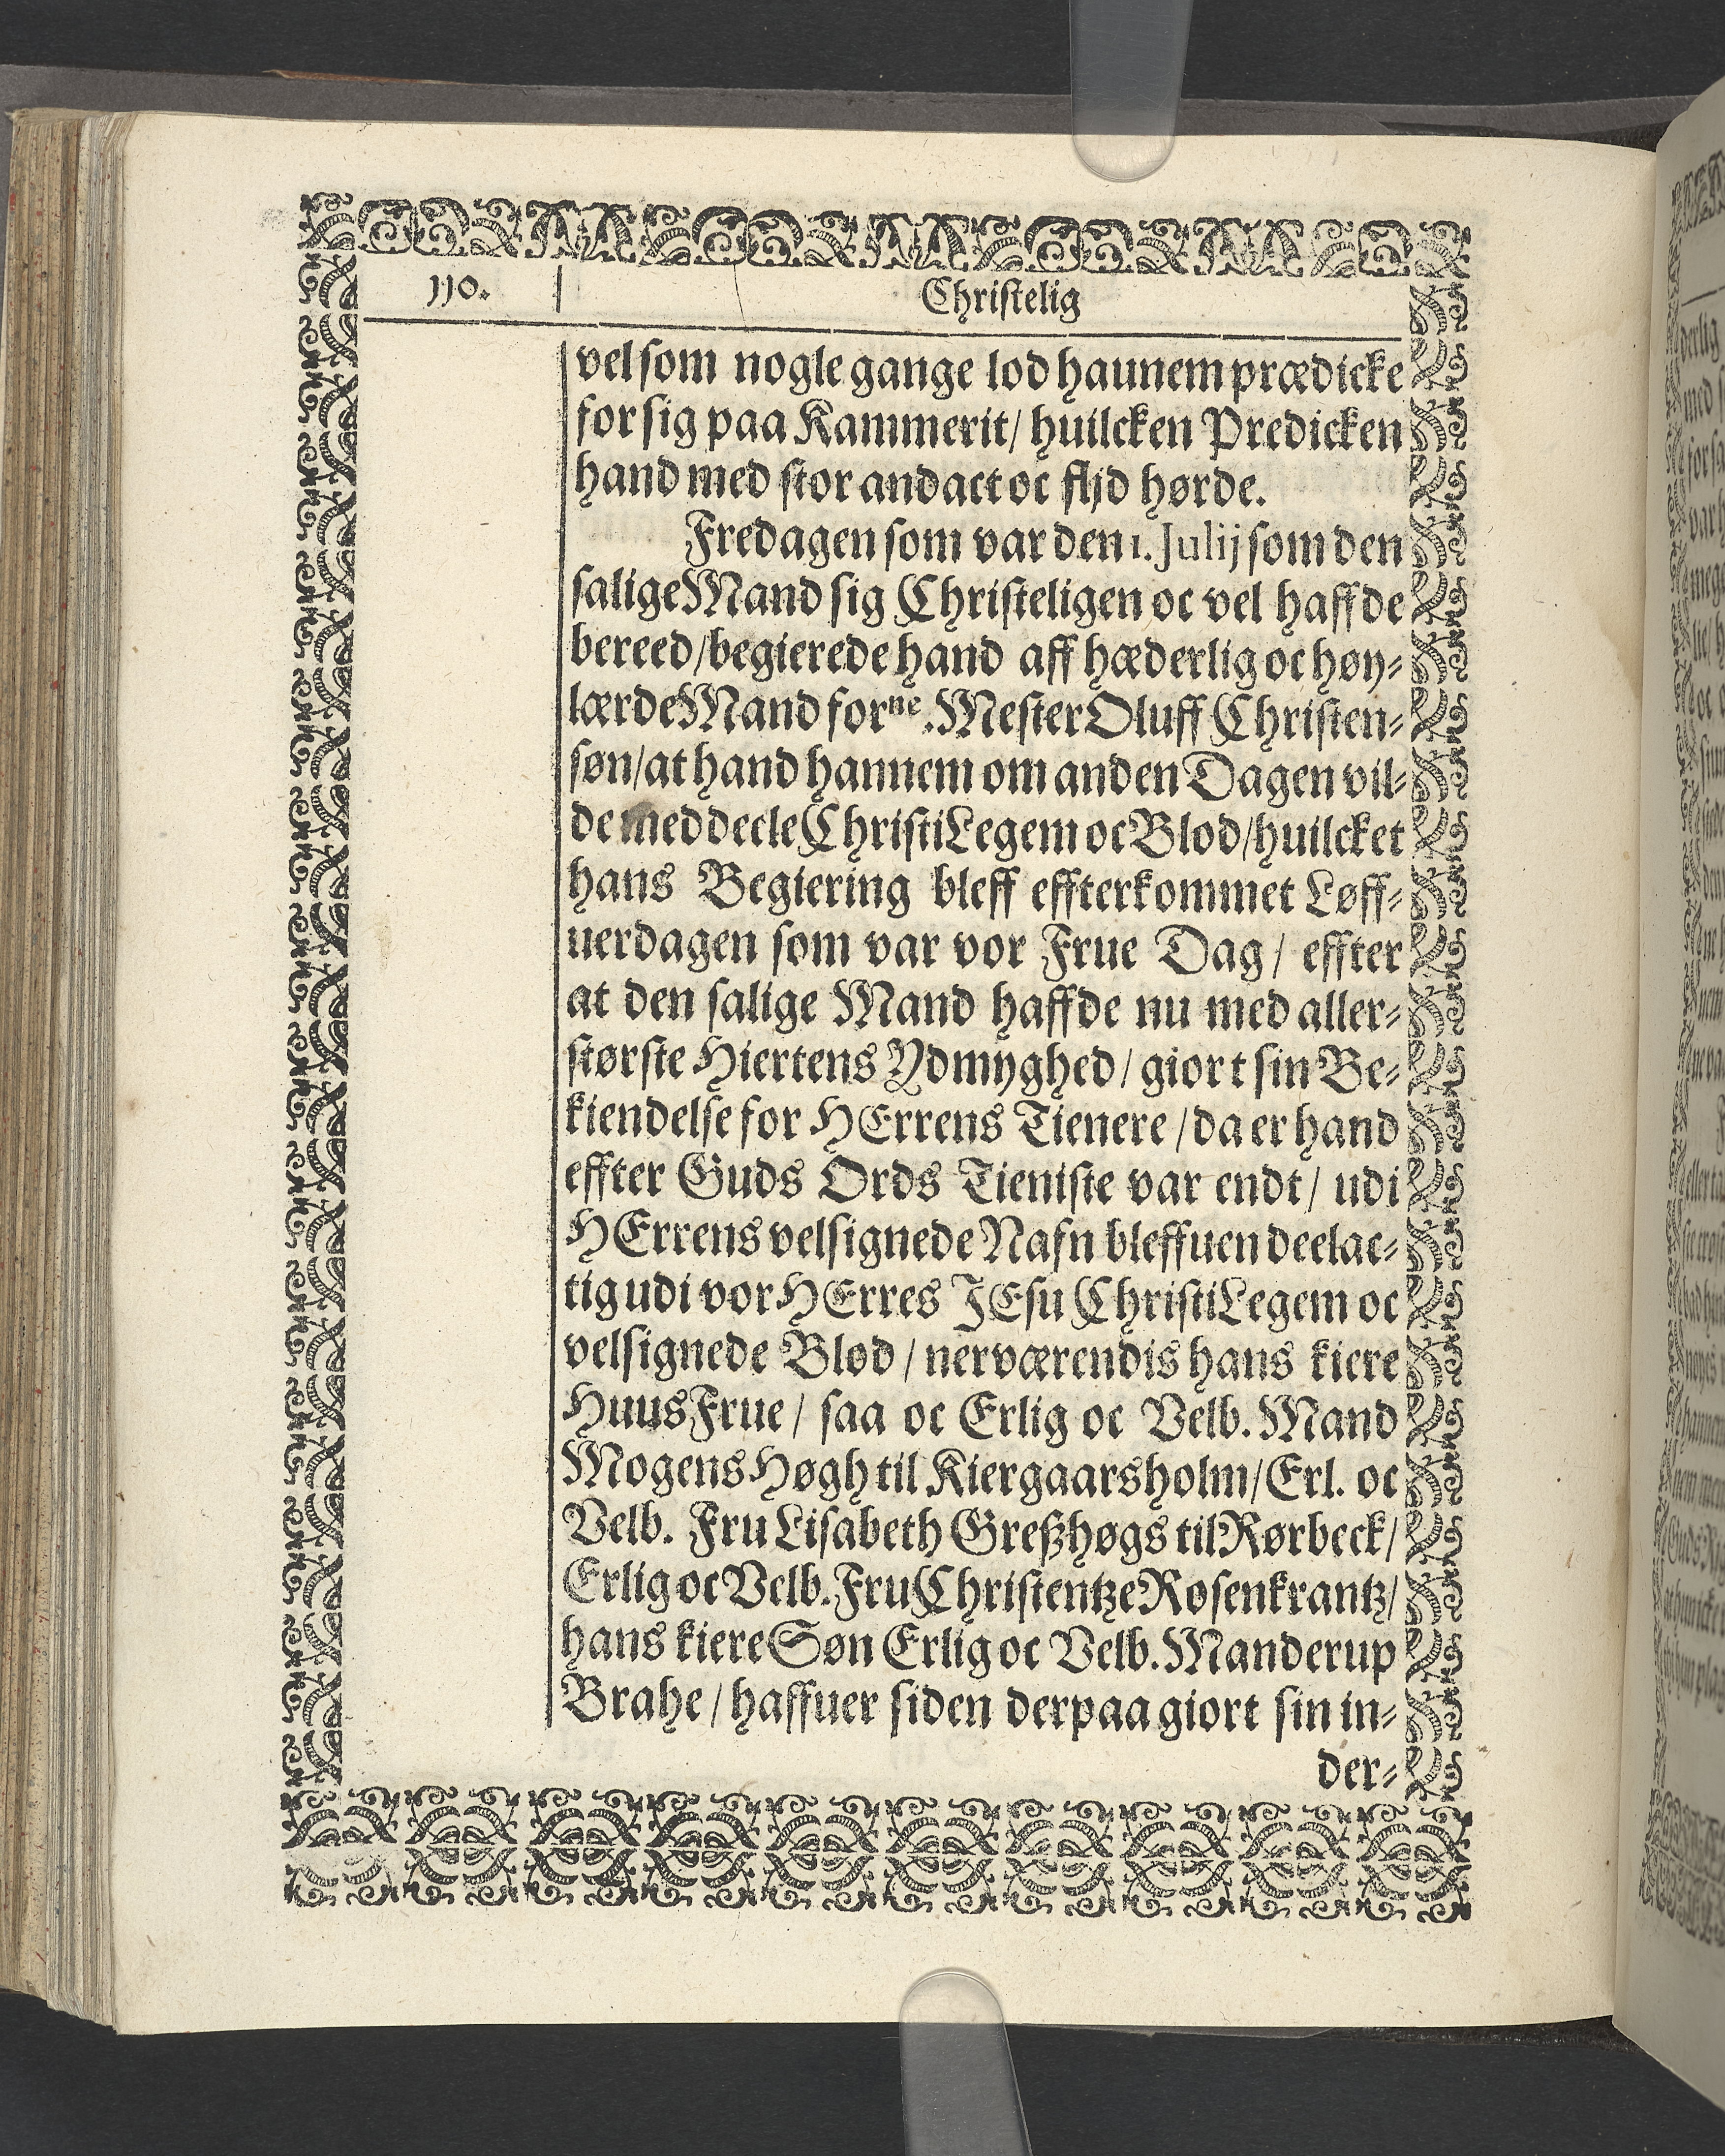 110.
Christelig
vel som nogle gange lod haunem prædicke
for sig paa Kammerit/ huilcken Predicken
hand med stor andact oc flijd hørde.
Fredagen som var den 1. Julij som den
salige Mand sig Christeligen oc vel haffde
bereed/begierede hand aff hæderlig oc høy⸗
lærde Mand forne. Mester Oluff Christen⸗
søn/at hand hannem om anden Dagen vil⸗
de meddeele Christi Legem oc Blod/huilcket
hans Begiering bleff effterkommet Løff⸗
uerdagen som var vor Frue Dag/ effter
at den salige Mand haffde nu med aller⸗
største Hiertens Ydmyghed/ giort sin Be⸗
kiendelse for HErrens Tienere/da er hand
effter Guds Ords Tieniste var endt/ udi
HErrens velsignede Nafn bleffuen deelac⸗
tig udi vor HErres JEsu Christi Legem oc
velsignede Blod/ nerværendis hans kiere
HuusFrue/ saa oc Erlig oc Velb. Mand
Mogens Høgh til Kiergaarsholm/Erl. oc
Velb. Fru Lisabeth Greßhøgs til Rørbeck/
Erlig oc Velb. Fru Christentze Rosenkrantz/
hans kiere Søn Erlig oc Velb. Manderup
Brahe/ haffuer siden derpaa giort sin in⸗
der⸗